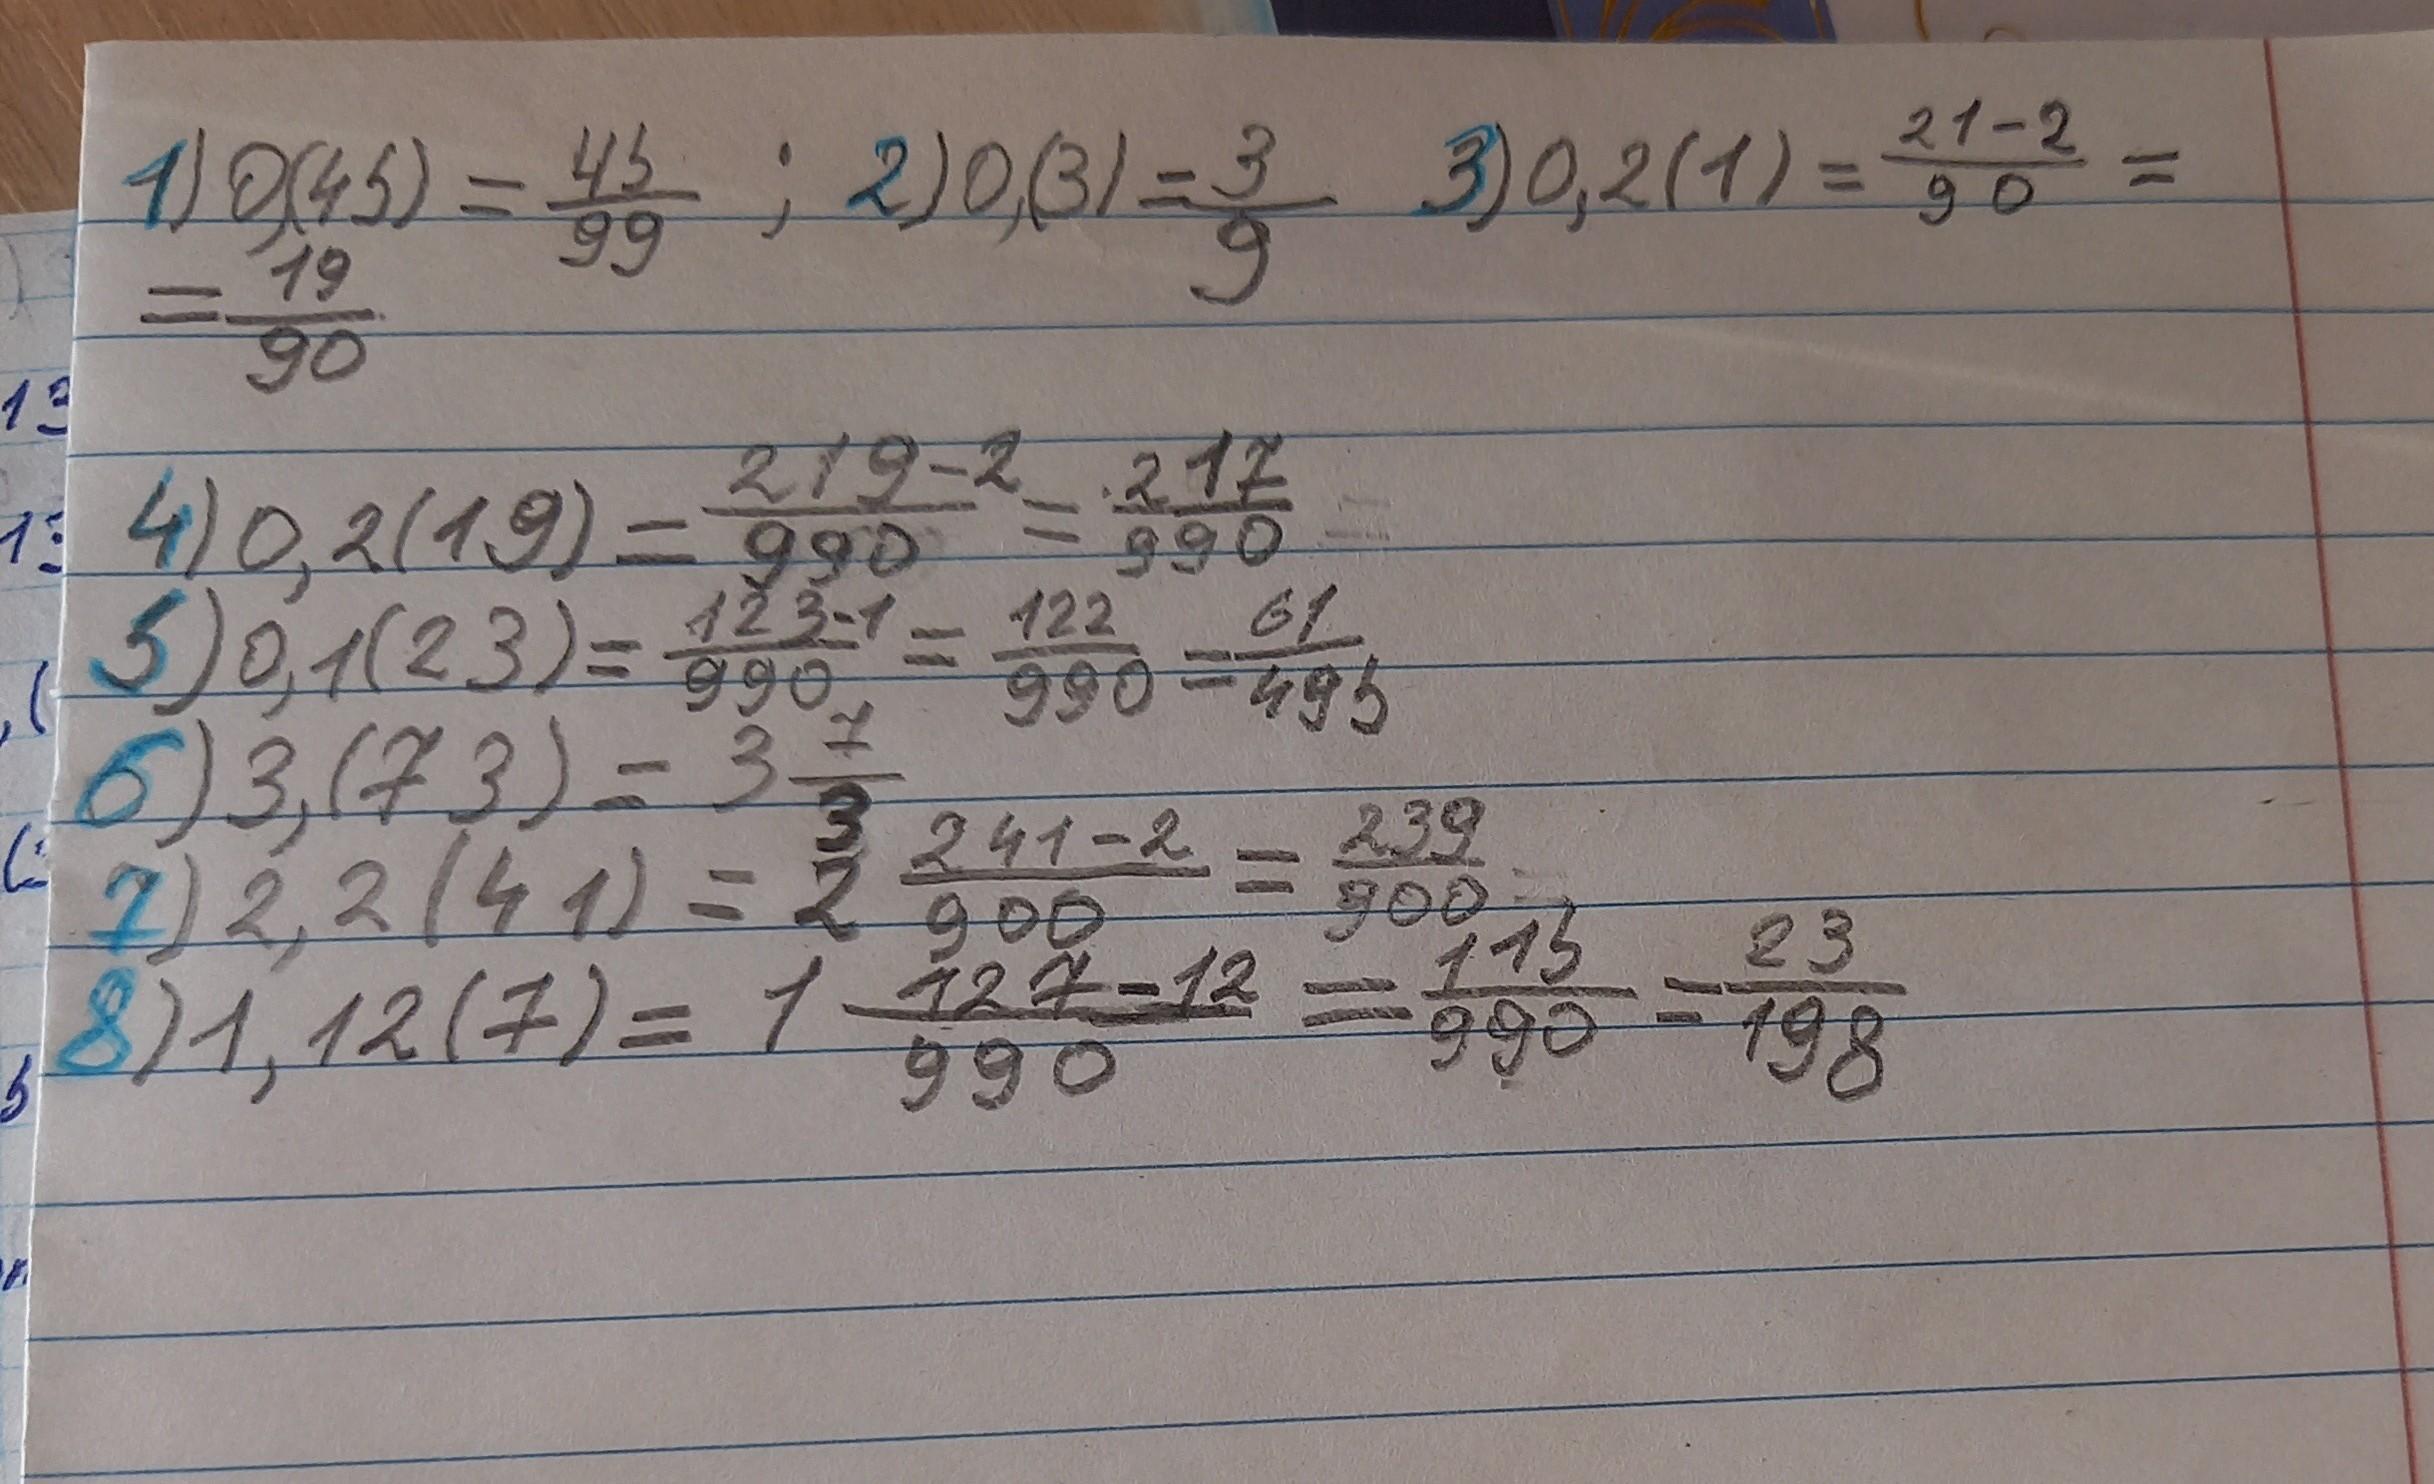 1) 0,(45) = 45/99 ; 2) 0,(3) = 3/9 3) 0,2(1) = 21-2/90 =
= 19/90
4) 0,2(19) = 219-2/990 = 217/990 =
5) 0,1(23) = 123-1/990 = 122/990 = 61/495
6) 3,(73) = 3 7/3
7) 2,2(41) = 2 241-2/900 = 239/900
8) 1,12(7) = 1 127-12/990 = 115/990 = 23/198
13